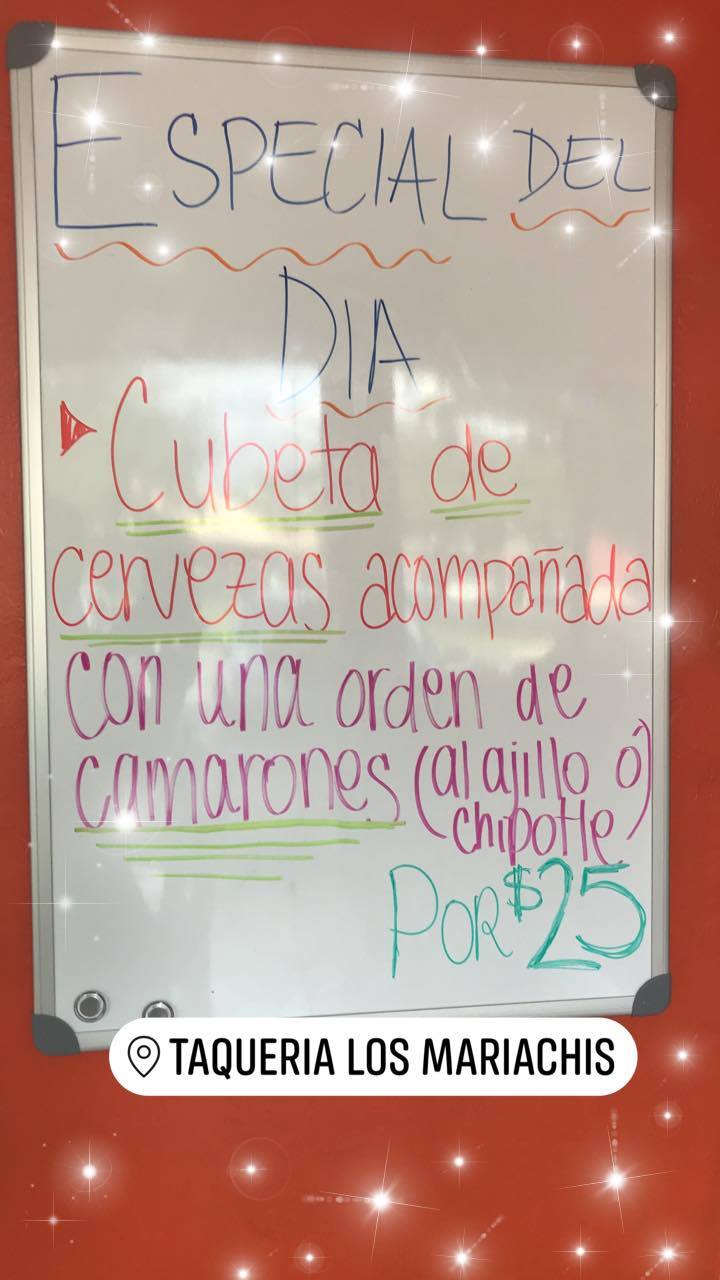 ESPECIAL DEL
DIA
Cubeta de
cervezas acompañada
con una orden de
camarones (al ajillo ó
chipotle)
POR $25
TAQUERIA LOS MARIACHIS